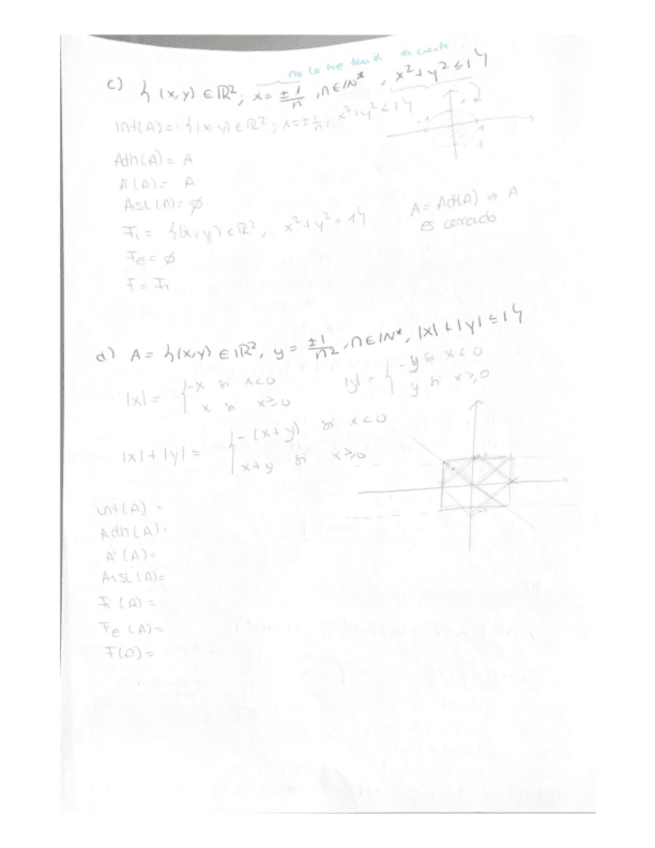 no lo he tenido en cuenta
c) { (x,y) ∈ ℝ²; x = ±1/n, n ∈ ℕ*, x²+y² ≤ 1}
Int(A) = {(x,y) ∈ ℝ²; x = ±1/n, x²+y² < 1}
Adh(A) = A
A'(A) = A
Aisl(A) = ∅
Fi = {(x,y) ∈ ℝ², x²+y² = 1}
Fe = ∅
F = Fi
A = Adh(A) ⇒ A
es cerrado
d) A = {(x,y) ∈ ℝ², y = ±1/n², n ∈ ℕ*, |x|+|y| ≤ 1}
|x| = { -x si x<0
x si x≥0
|y| = { -y si x<0
y si x≥0
|x|+|y| = { -(x+y) si x<0
x+y si x≥0
Int(A) =
Adh(A) =
A'(A) =
Aisl(A) =
Fi(A) =
Fe(A) =
F(A) =